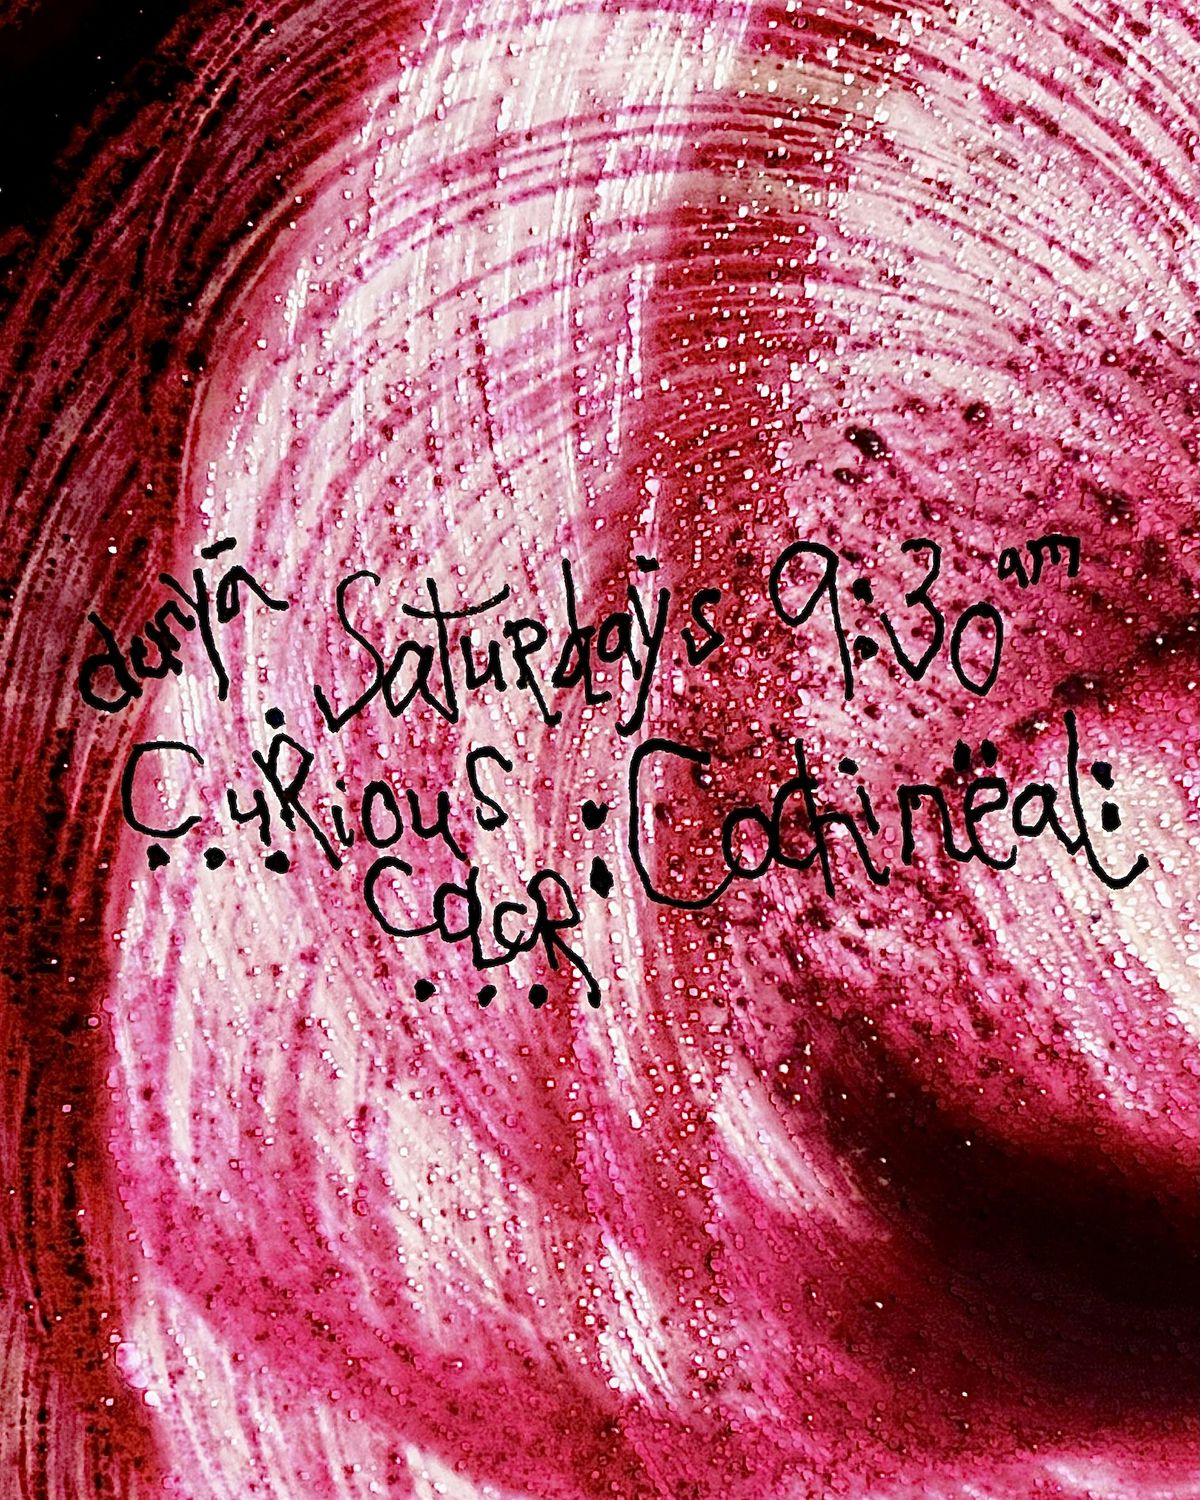 denya Saturdays 9:30 am
Curious :Cochinëal: